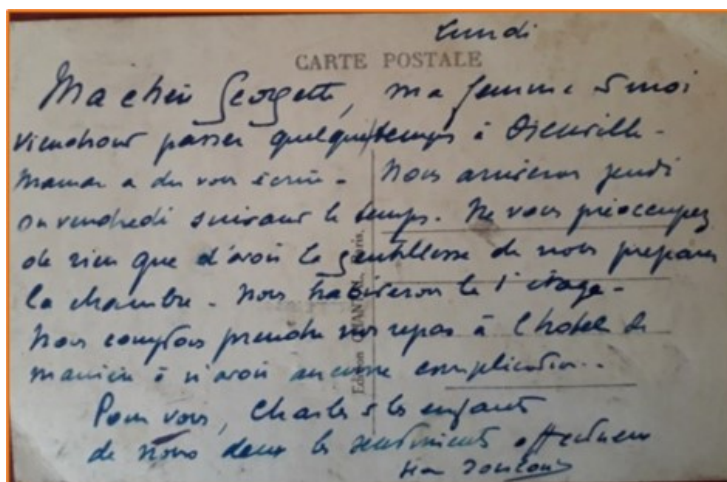 Lundi
CARTE POSTALE
Ma chère Georgette, ma femme & moi
viendront passer quelque temps à Dienville -
Maman a du vous écrire - Nous arriverons jeudi
ou vendredi suivant le temps. Ne vous préoccupez
de rien que d'avoir la gentillesse de nous préparer
la chambre - Nous habiterons le 1 étage -
Nous comptons prendre nos repas à l'hotel de
manière à n'avoir aucune complication..
Pour vous, Charles & les enfants
de nous deux les sentiments affectueux
Edition Paris.